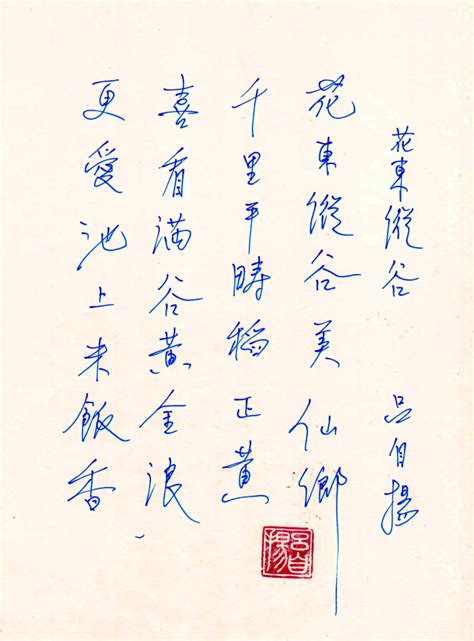 花東縱谷 呂自揚
花東縱谷美仙鄉
千里平疇稻正黃
喜看滿谷黃金浪
更愛池上米飯香
呂自揚